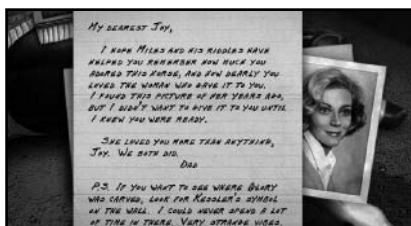 My dearest Joy,
I hope Miles and his riddles have
helped you remember how much you
adored this horse, and how dearly you
loved the woman who gave it to you.
I found this picture of her years ago,
but I didn't want to give it to you until
I knew you were ready.
She loved you more than anything,
Joy. We both did.
Dad
P.S. If you want to see where Glory
was carved, look for Kessler's symbol
on the wall. I could never spend a lot
of time in there. Very strange vibes.